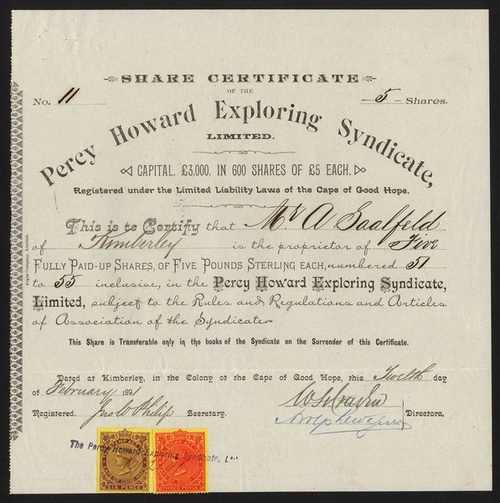 SHARE CERTIFICATE
OF THE
No. 11
5 Shares.
Percy Howard Exploring Syndicate,
LIMITED.
CAPITAL, £3,000, IN 600 SHARES OF £5 EACH.
Registered under the Limited Liability Laws of the Cape of Good Hope.
This is to Certify that Mr A Saalfeld
of Kimberley is the proprietor of Five
FULLY PAID-UP SHARES, OF FIVE POUNDS STERLING EACH, numbered 51
to 55 inclusive, in the Percy Howard Exploring Syndicate,
Limited, subject to the Rules and Regulations and Articles
of Association of the Syndicate
This Share is Transferable only in the books of the Syndicate on the Surrender of this Certificate.
Dated at Kimberley, in the Colony of the Cape of Good Hope, this Twelfth day
of February 1891
Registered. Philip Secretary.
Directors,
The Percy Howard Exploring Syndicate, Ltd
SIX PENCE